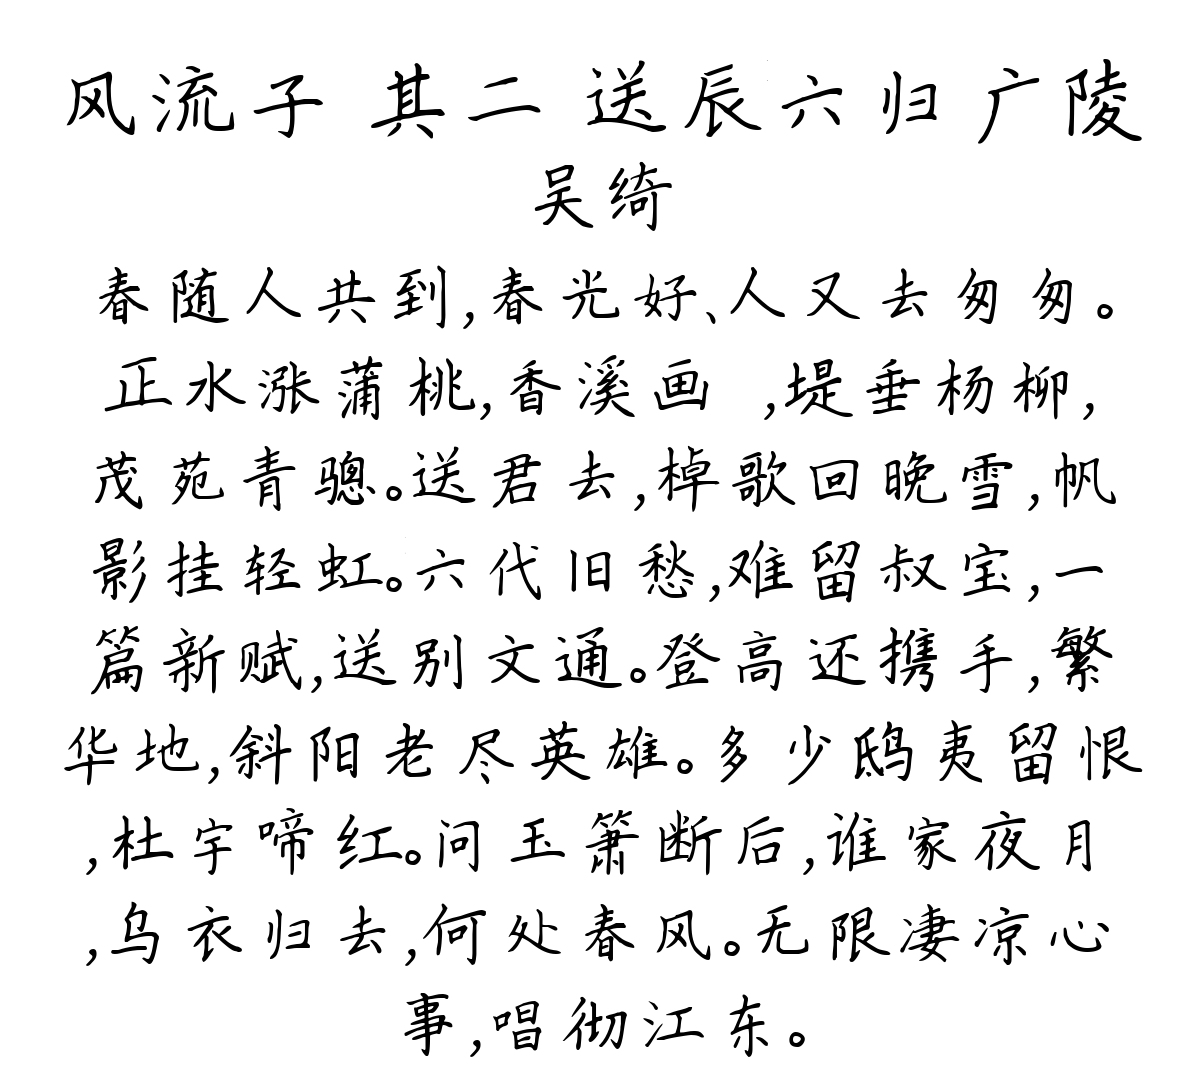 风流子 其二 送辰六归广陵
吴绮
春随人共到,春光好、人又去匆匆。
正水涨蒲桃,香溪画 ,堤垂杨柳,
茂苑青骢。送君去,棹歌回晚雪,帆
影挂轻虹。六代旧愁,难留叔宝,一
篇新赋,送别文通。登高还携手,繁
华地,斜阳老尽英雄。多少鸱夷留恨
,杜宇啼红。问玉箫断后,谁家夜月
,乌衣归去,何处春风。无限凄凉心
事,唱彻江东。